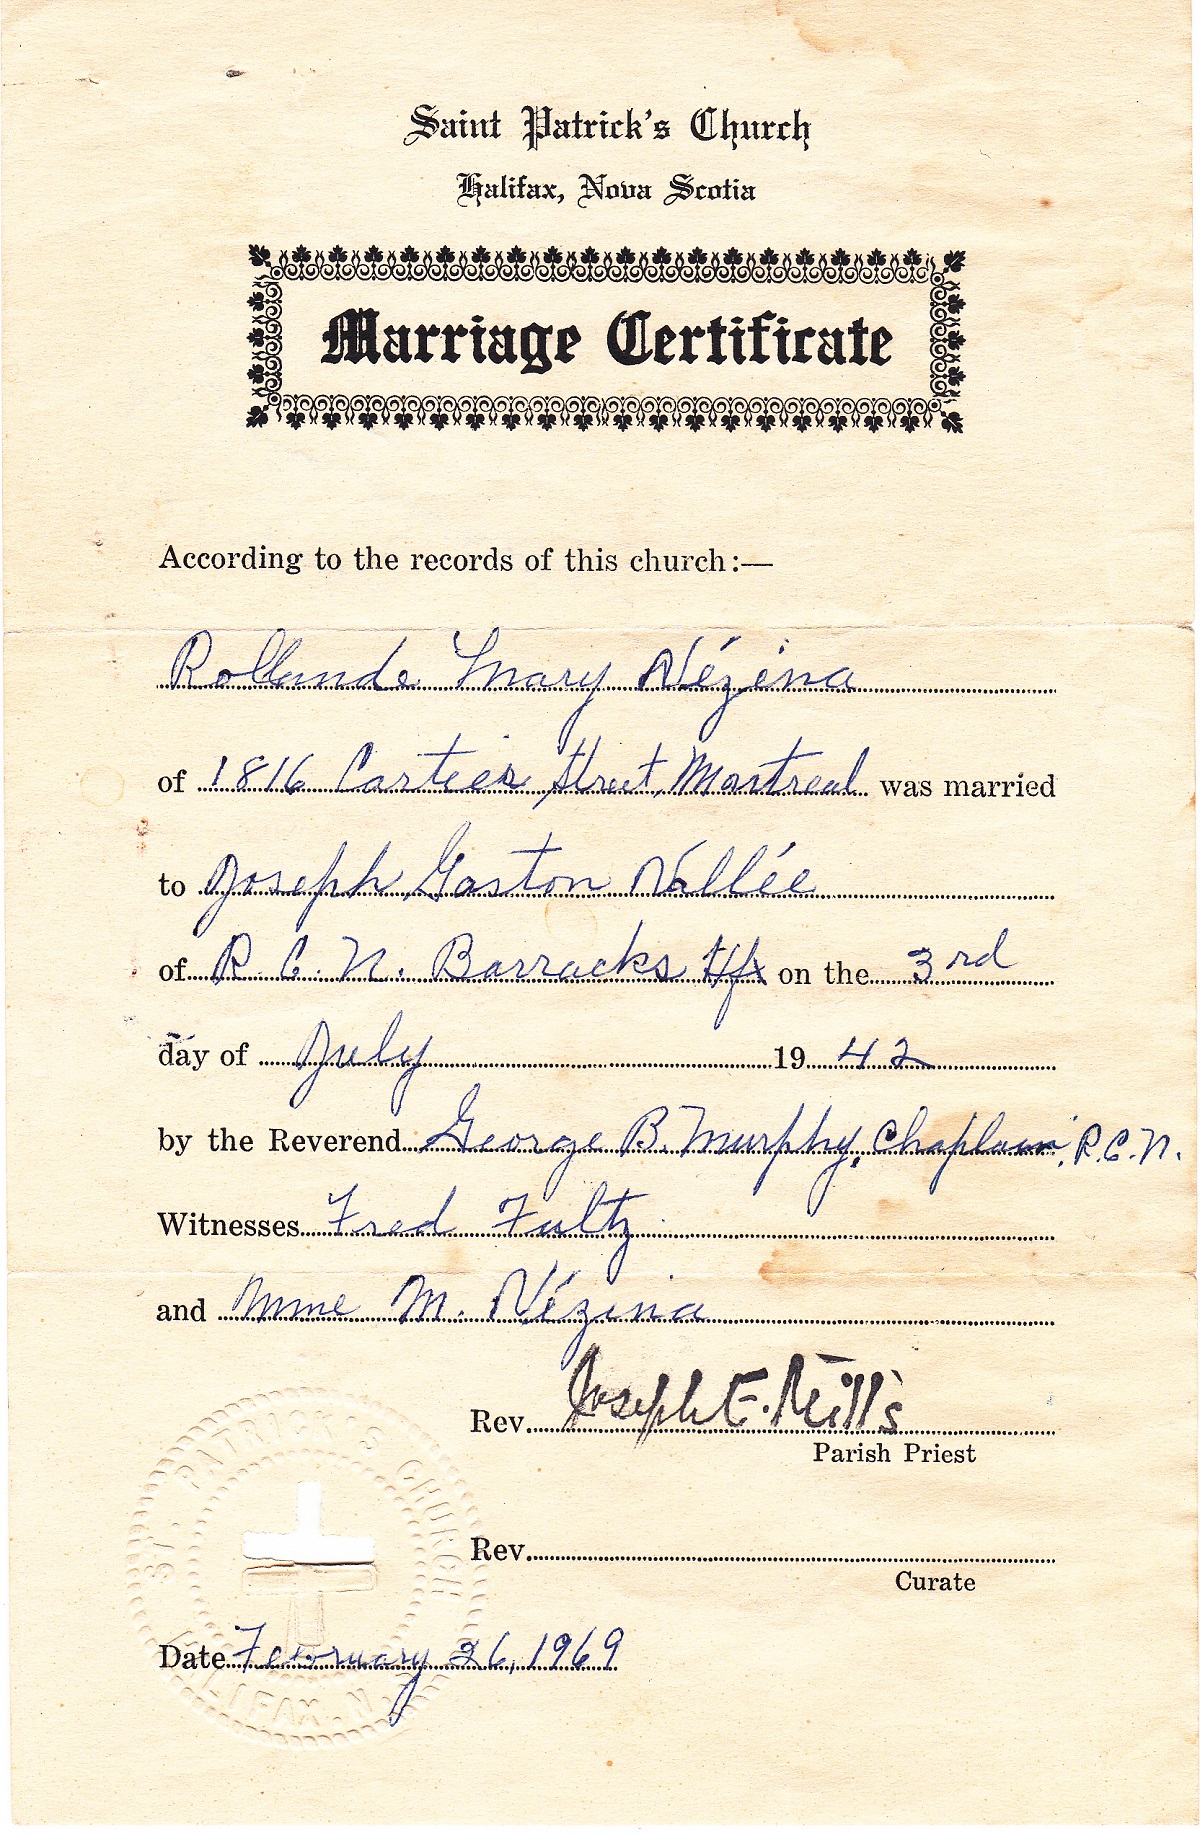 Saint Patrick's Church
Halifax, Nova Scotia
Marriage Certificate
According to the records of this church:—
Rollande Mary Vézina
of 1816 Cartier Street, Montreal was married
to Joseph Gaston Vallée
of R. C. N. Barracks Hfx on the 3rd
day of July 1942
by the Reverend George B. Murphy, Chaplain, R.C.N.
Witnesses Fred Fultz
and Mme M. Vézina
Rev. Joseph E. Mills
Parish Priest
Rev.
Curate
ST. PATRICK'S CHURCH
HALIFAX, N.S.
Date February 26, 1969